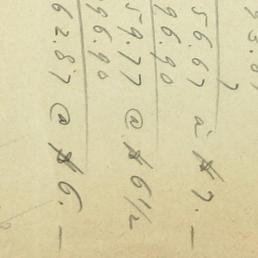 56.67 à $7.—
96.90
59.77 @ $6½
96.90
62.87 @ $6.—